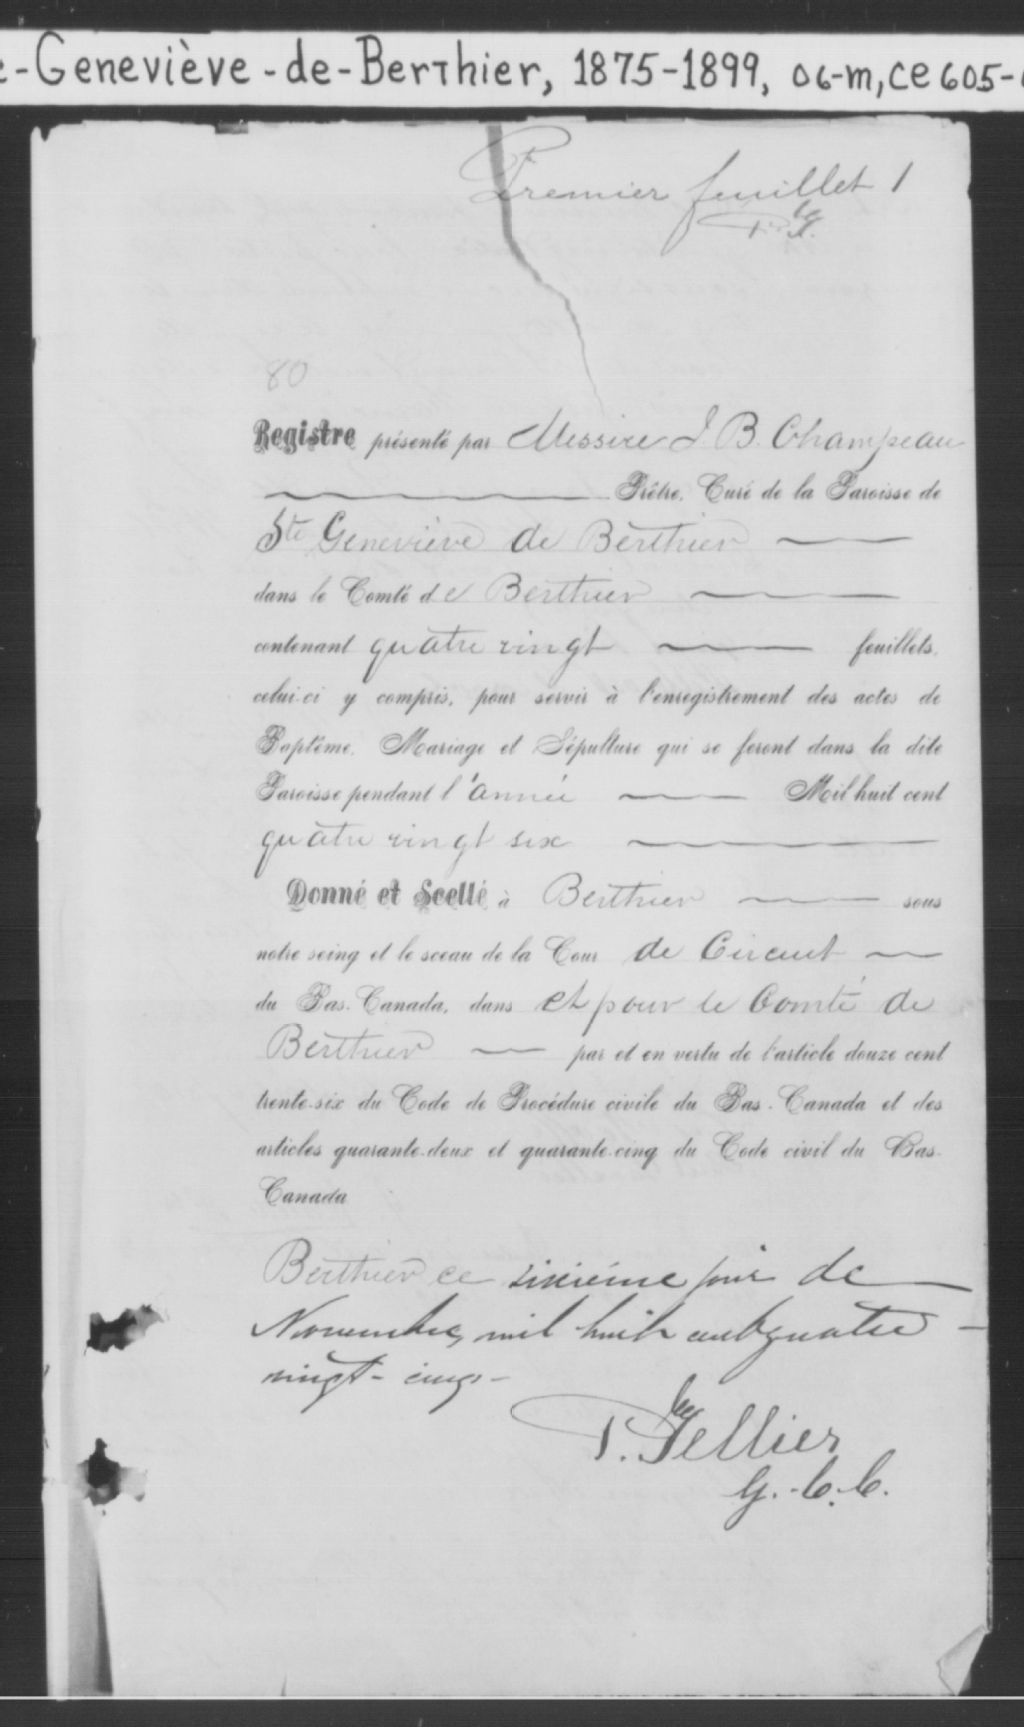 e-Geneviève-de-Berthier, 1875-1899, 06-m, ce 605-
Premier feuillet 1
80
Registre présenté par Messire J. B. Champeau
Prêtre, Curé de la Paroisse de
Ste Geneviève de Berthier
dans le Comté de Berthier
contenant quatre vingt feuillets,
celui-ci y compris, pour servir à l'enregistrement des actes de
Baptême, Mariage et Sépulture qui se feront dans la dite
Paroisse pendant l'année Mil huit cent
quatre vingt six
Donné et Scellé à Berthier sous
notre seing et le sceau de la Cour de Circuit
du Bas-Canada, dans et pour le Comté de
Berthier par et en vertu de l'article douze cent
trente-six du Code de Procédure civile du Bas-Canada et des
articles quarante-deux et quarante-cinq du Code civil du Bas-
Canada
Berthier ce sixième jour de
Novembre, mil huit cent quatre
vingt-cinq-
P. Tellier
G. C. C.